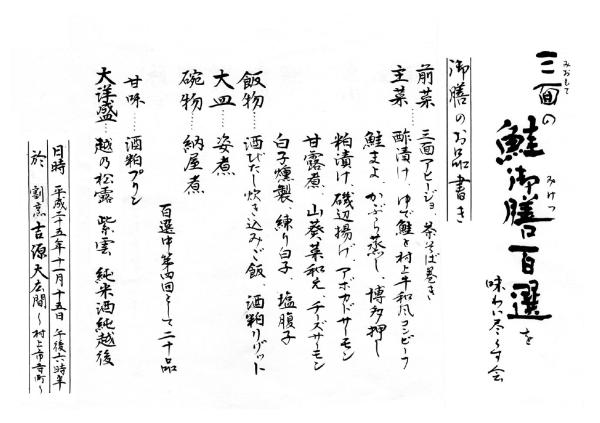 三面の鮭御膳百選を
みおもて
みけつ
味わい尽くす会
御膳のお品書き
前菜……三面アヒージョ 茶そば巻き
主菜……酢漬け、ゆで鮭と村上牛和風コンビーフ
鮭まよ、かぶら蒸し、博多押し
粕漬け、磯辺揚げ、アボカドサーモン
甘露煮、山葵菜和え、チーズサーモン
白子燻製、練り白子、塩腹子
飯物……酒びたし炊き込みご飯、酒粕リゾット
大皿……姿煮
碗物……納屋煮
百選中第四回そして二十品
甘味…酒粕プリン
大洋盛…越乃松露 紫雲 純米酒純越後
日時 平成二十五年十一月十五日 午後六時半
於 割烹 吉源大広間～村上市寺町～